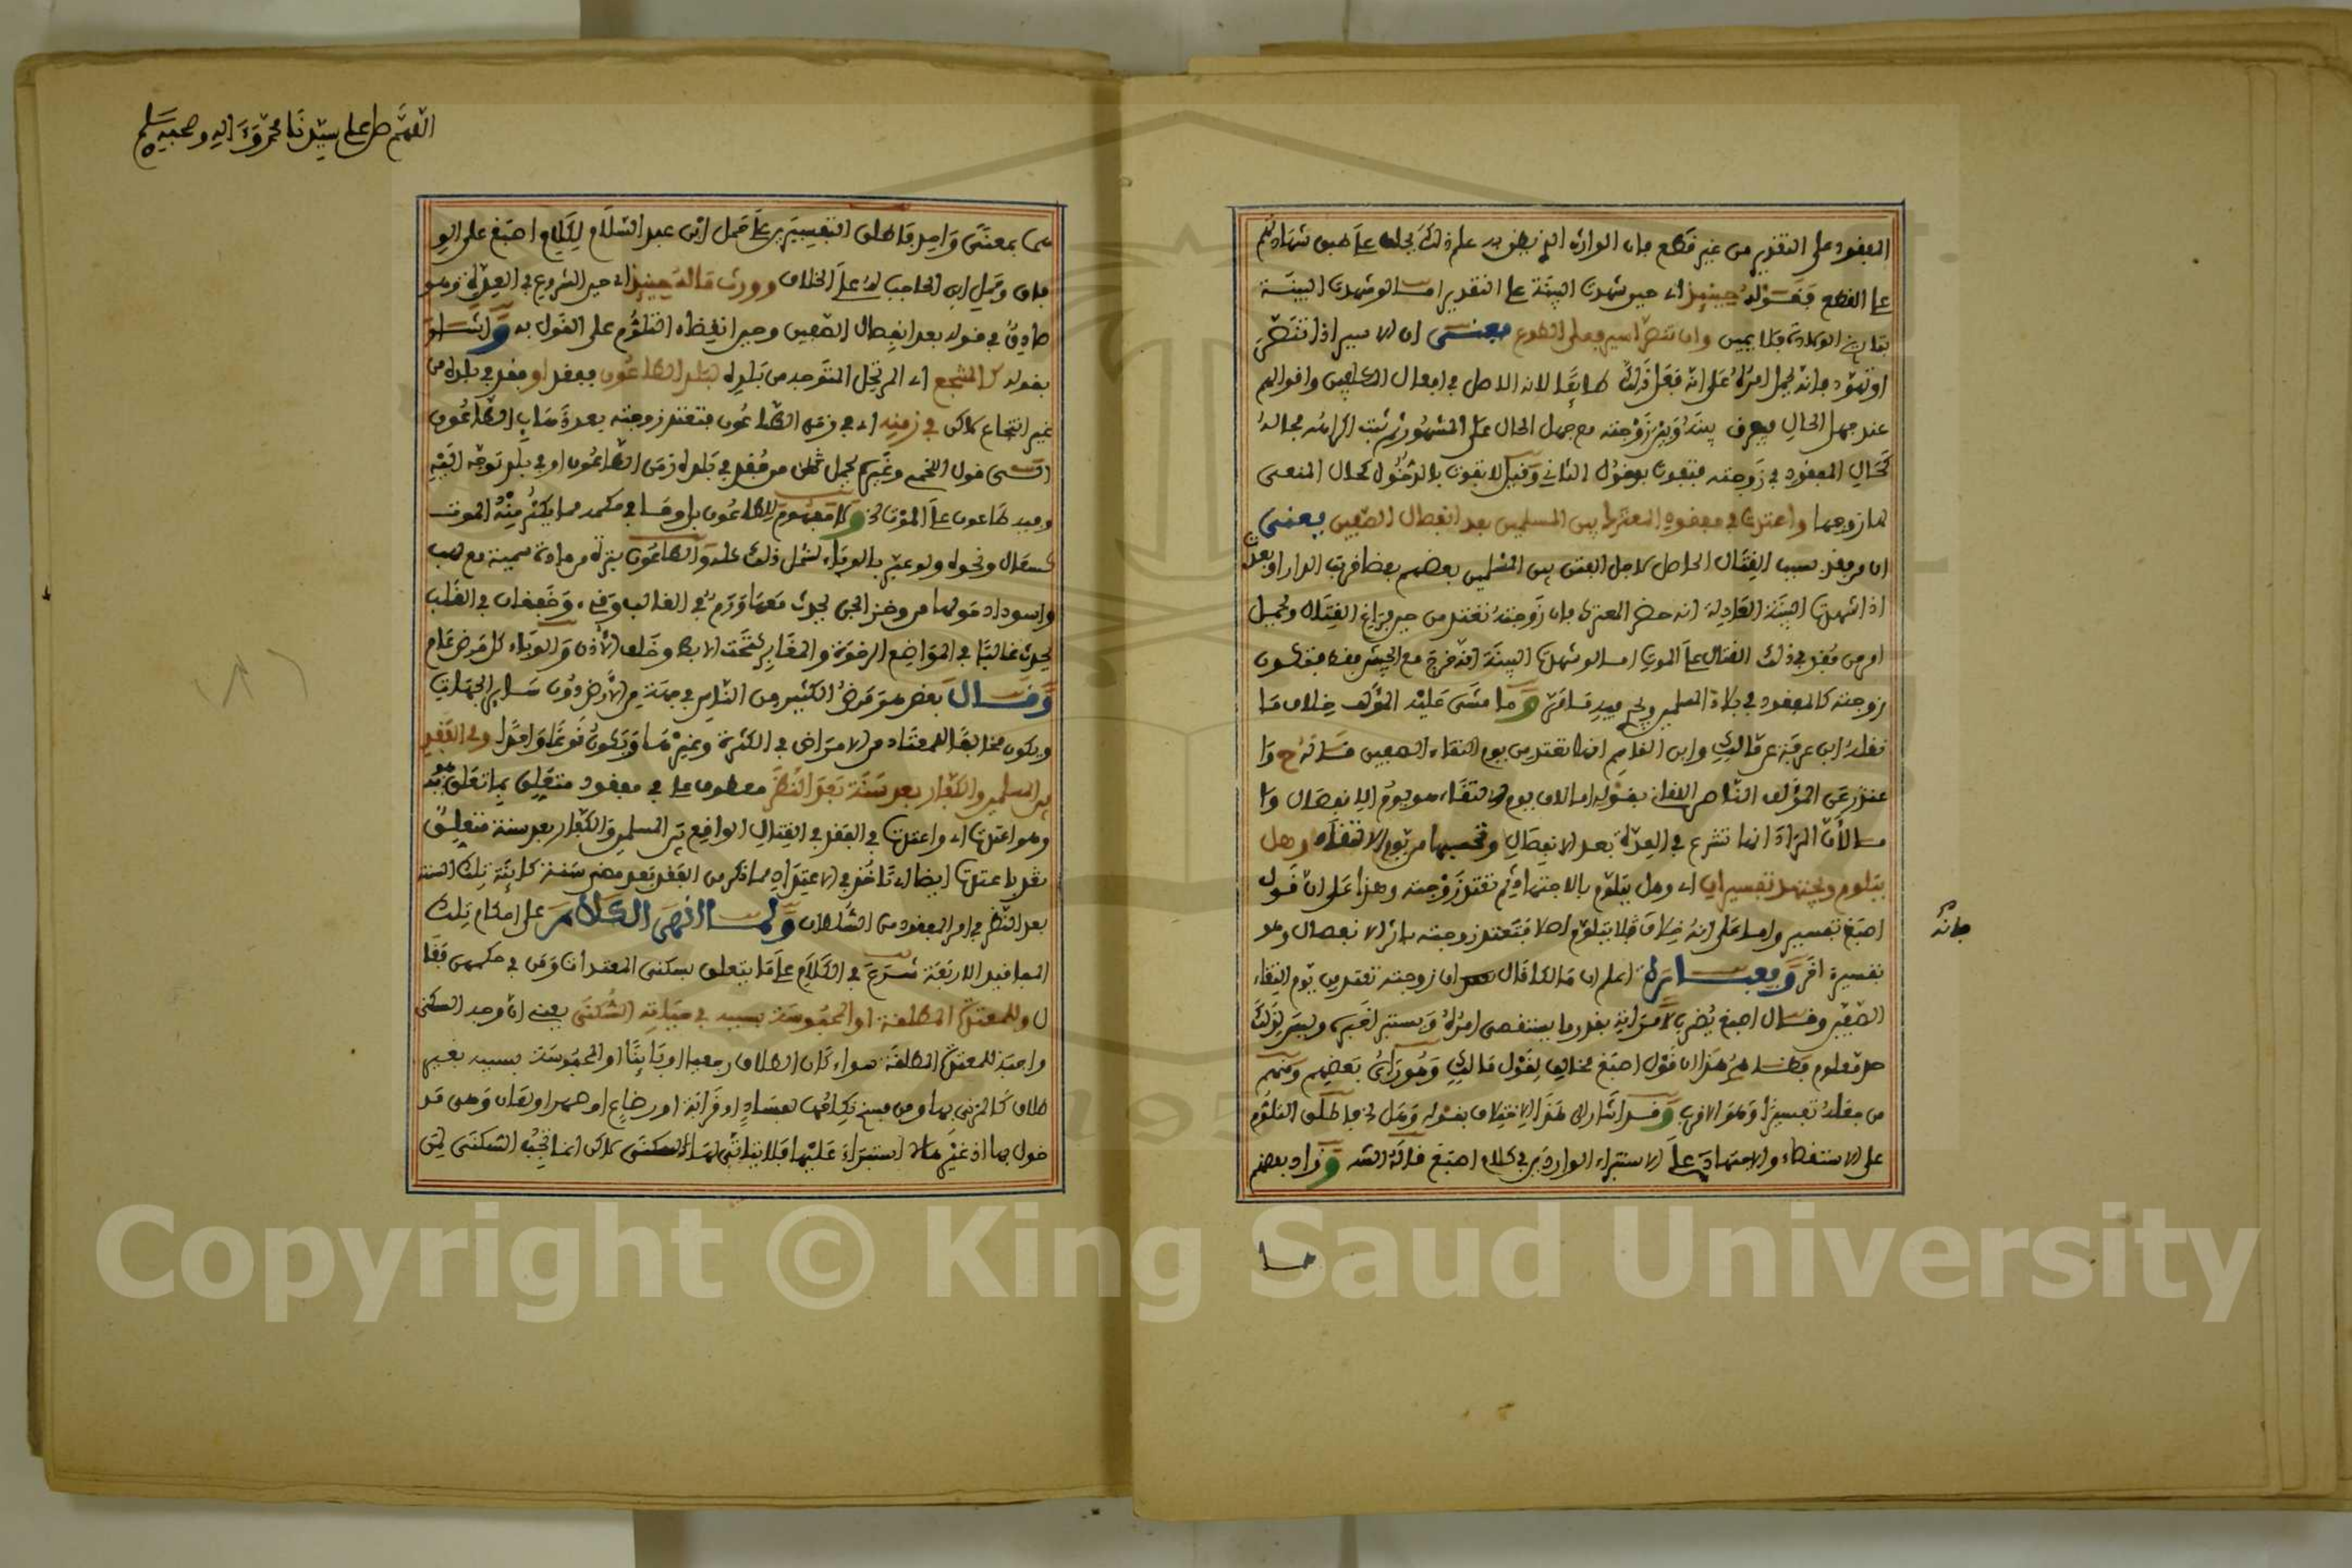 المفقود على التقدير من غير قطع فإن الوارث الذي يظن به علم ذلك يحلف على طبق شهادتهم
على القطع فقوله حينئذ أي حين شهدت البينة على التقدير أما لو شهدت البينة
بتاريخ الولادة فلا يمين وإن تنصر أسير فعلى الطوع يعني أن الأسير إذا تنصر
أو تهود فإنه يحمل أمره على أنه فعل ذلك طائعا لأنه الأصل في أفعال المكلفين وأقوالهم
عند جهل الحال فيفرق بينه وبين زوجته مع جهل الحال على المشهور ثم ثبت إكراهه فحاله
كحال المفقود في زوجته فتفوت بدخول الثاني وقيل لا تفوت بالدخول كحال المنعى
لها زوجها واعتدت في مفقود المعترك بين المسلمين بعد انفصال الصفين يعني
أن من فقد بسبب القتال الحاصل لأجل الفتن بين المسلمين بعضهم بعضا قربت الدار أو بعدت
إذا شهدت البينة العادلة أنه حضر المعترك فإن زوجته تعتد من حين فراغ القتال ويحمل
أمر من فقد في ذلك القتال على الموت أما لو شهدت البينة أنه خرج مع الجيش فقط فتكون
زوجته كالمفقود في بلاد المسلمين ويجري فيه ما مر وما مشى عليه المؤلف خلاف ما
نقله ابن عرفة عن مالك وابن القاسم أنها تعتد من يوم التقاء الصفين قاله ح وا
عتذر عن المؤلف الناصر اللقاني بقوله
مسا لأن المراد أنها تشرع في العدة بعد الانفصال وتحسبها من يوم الالتقاء وهل
يتلوم ويجتهد تفسيران أي وهل يتلوم بالاجتهاد ثم تعتد زوجته وهذا على أن قول
فإنه
أصبغ تفسير وأما على أنه خلاف فلا يتلوم أصلا فتعتد زوجته بإثر الانفصال وهو
تفسير آخر وبعبارة اعلم أن مالكا قال إن زوجته تعتد من يوم التقاء
الصفين وقال أصبغ يضرب لامرأته بقدر ما يستقصى أمره ويستبرأ خبره وليس لذلك
حد معلوم فظاهر هذا أن قول أصبغ مخالف لقول مالك وهو رأي بعضهم ومنهم
من جعله تفسيرا وهو الأقرب وقد أشار إلى هذا الاختلاف بقوله وهل الخ فأطلق التلوم
على الاستقصاء والاجتهاد على الاستبراء الواردين في كلام أصبغ فإنه الشه وزاد بعضهم
اللهم صل على سيدنا محمد وآله وصحبه وسلم
بمعنى واحد فأطلق التفسيرين على حمل ابن عبد السلام لكلام أصبغ على الو
فاق وحمل ابن الحاجب له على الخلاف وورث ماله حينئذ أي حين الشروع في العدة وهو
صادق في قوله بعد انفصال الصفين وحين انقضاء التلوم على القول به وأشار
بقوله كالمنتجع أي المرتحل المتوجه من بلده لبلد الطاعون ففقد أو فقد في بلده من
غير انتجاع لكن في زمنه أي في زمن الطاعون فتعتد زوجته بعد ذهاب الطاعون
قول اللخمي وغيره يحمل من فقد في بلده زمن الطاعون أو في بلد توجه إليه
وفيه طاعون على الموت الخ ولا مفهوم للطاعون بل وما في حكمه مما يكثر منه الموت
كسعال ونحوه ولو عبر بالوباء لشمل ذلك كله والطاعون بثرة من مادة سمية مع لهب
واسوداد حولها من وخز الجن يحدث معها ورم في الغالب وقيء وخفقان في القلب
يحدث غالبا في المواضع الرخوة والمغابن كتحت الإبط وخلف الأذن والوباء كل مرض عام
وقال بعض هو مرض الكثير من الناس في جهة من الأرض دون سائر الجهات
ويكون مخالفا للمعتاد من الأمراض في الكثرة وغيرها ويكون نوعا واحدا وفي الفقد
بين المسلمين والكفار بعد سنة بعد النظر معطوف على في مفقود متعلق بما تعلق به
وهو اعتدت أي واعتدت في الفقد في القتال الواقع بين المسلمين والكفار بعد سنة متعلق
باعتدت أيضا أي تأخذ في الاعتداد مما ذكر من الفقد بعد مضي سنة كائنة تلك السنة
بعد النظر في أمر المفقود من السلطان ولما أنهى الكلام على أحكام تلك
المفاقيد الأربعة شرع في الكلام على ما يتعلق بسكنى المعتدات ومن في حكمهن فقا
ل وللمعتدة المطلقة أو المحبوسة بسببه في حياته السكنى يعني أن وجود السكنى
واجبة للمعتدة المطلقة سواء كان الطلاق رجعيا أو بائنا أو المحبوسة بسببه بغير
طلاق كالمزني بها ومن فسخ نكاحها لفساد أو قرابة أو رضاع أو صهر أو لعان وهي قد
خول بها إذ غيرها لا استبراء عليها فلا يتأتى لها السكنى لكن إنما تجب السكنى لمن